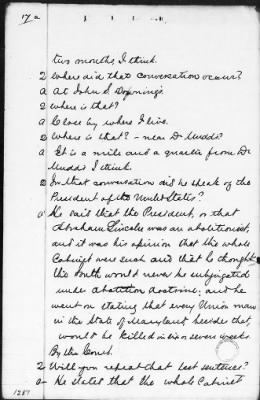 17 a
two months, I think.
Q Where did that conversation occur?
a At John S Downing's.
Q Where is that?
a Close by where I live.
Q Where is that? - near Dr Mudds?
a It is a mile and a quarter from Dr
Mudds I think.
Q In that conversation did he speak of the
President of the United States?
a He said that the President, or that
Abraham Lincoln was an abolitionist,
and it was his opinion that the whole
Cabinet were such and that he thought
the South would never be subjugated
under abolition doctrine; and he
went on stating that every Union man
in the State of Maryland, beside that,
would be killed in six or seven weeks
By the Court.
Q Will you repeat that last sentence?
a He stated that the whole Cabinet
1287